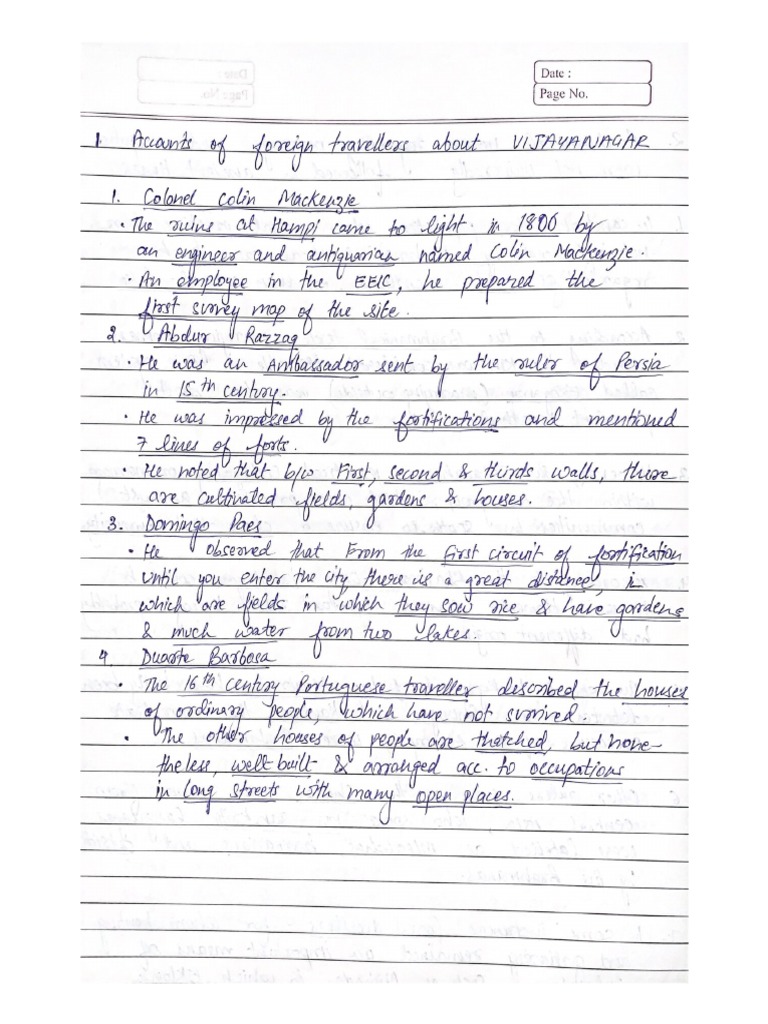 Date :
Page No.
1. Accounts of foreign travellers about VIJAYANAGAR
1. Colonel Colin Mackenzie
• The ruins at Hampi came to light in 1800 by
an engineer and antiquarian named Colin Mackenzie.
• An employee in the EEIC, he prepared the
first survey map of the site.
2. Abdur Razzaq
• He was an Ambassador sent by the ruler of Persia
in 15th century.
• He was impressed by the fortifications and mentioned
7 lines of forts.
• He noted that b/w First, second & thirds walls, there
are cultivated fields, gardens & houses.
3. Domingo Paes
• He observed that From the first circuit of fortification
until you enter the city there is a great distance, in
which are fields in which they sow rice & have gardens
& much water from two lakes.
4. Duarte Barbosa
• The 16th century Portuguese traveller described the houses
of ordinary people, which have not survived.
• The other houses of people are thatched, but none-
theless, well-built & arranged acc. to occupations
in long streets with many open places.